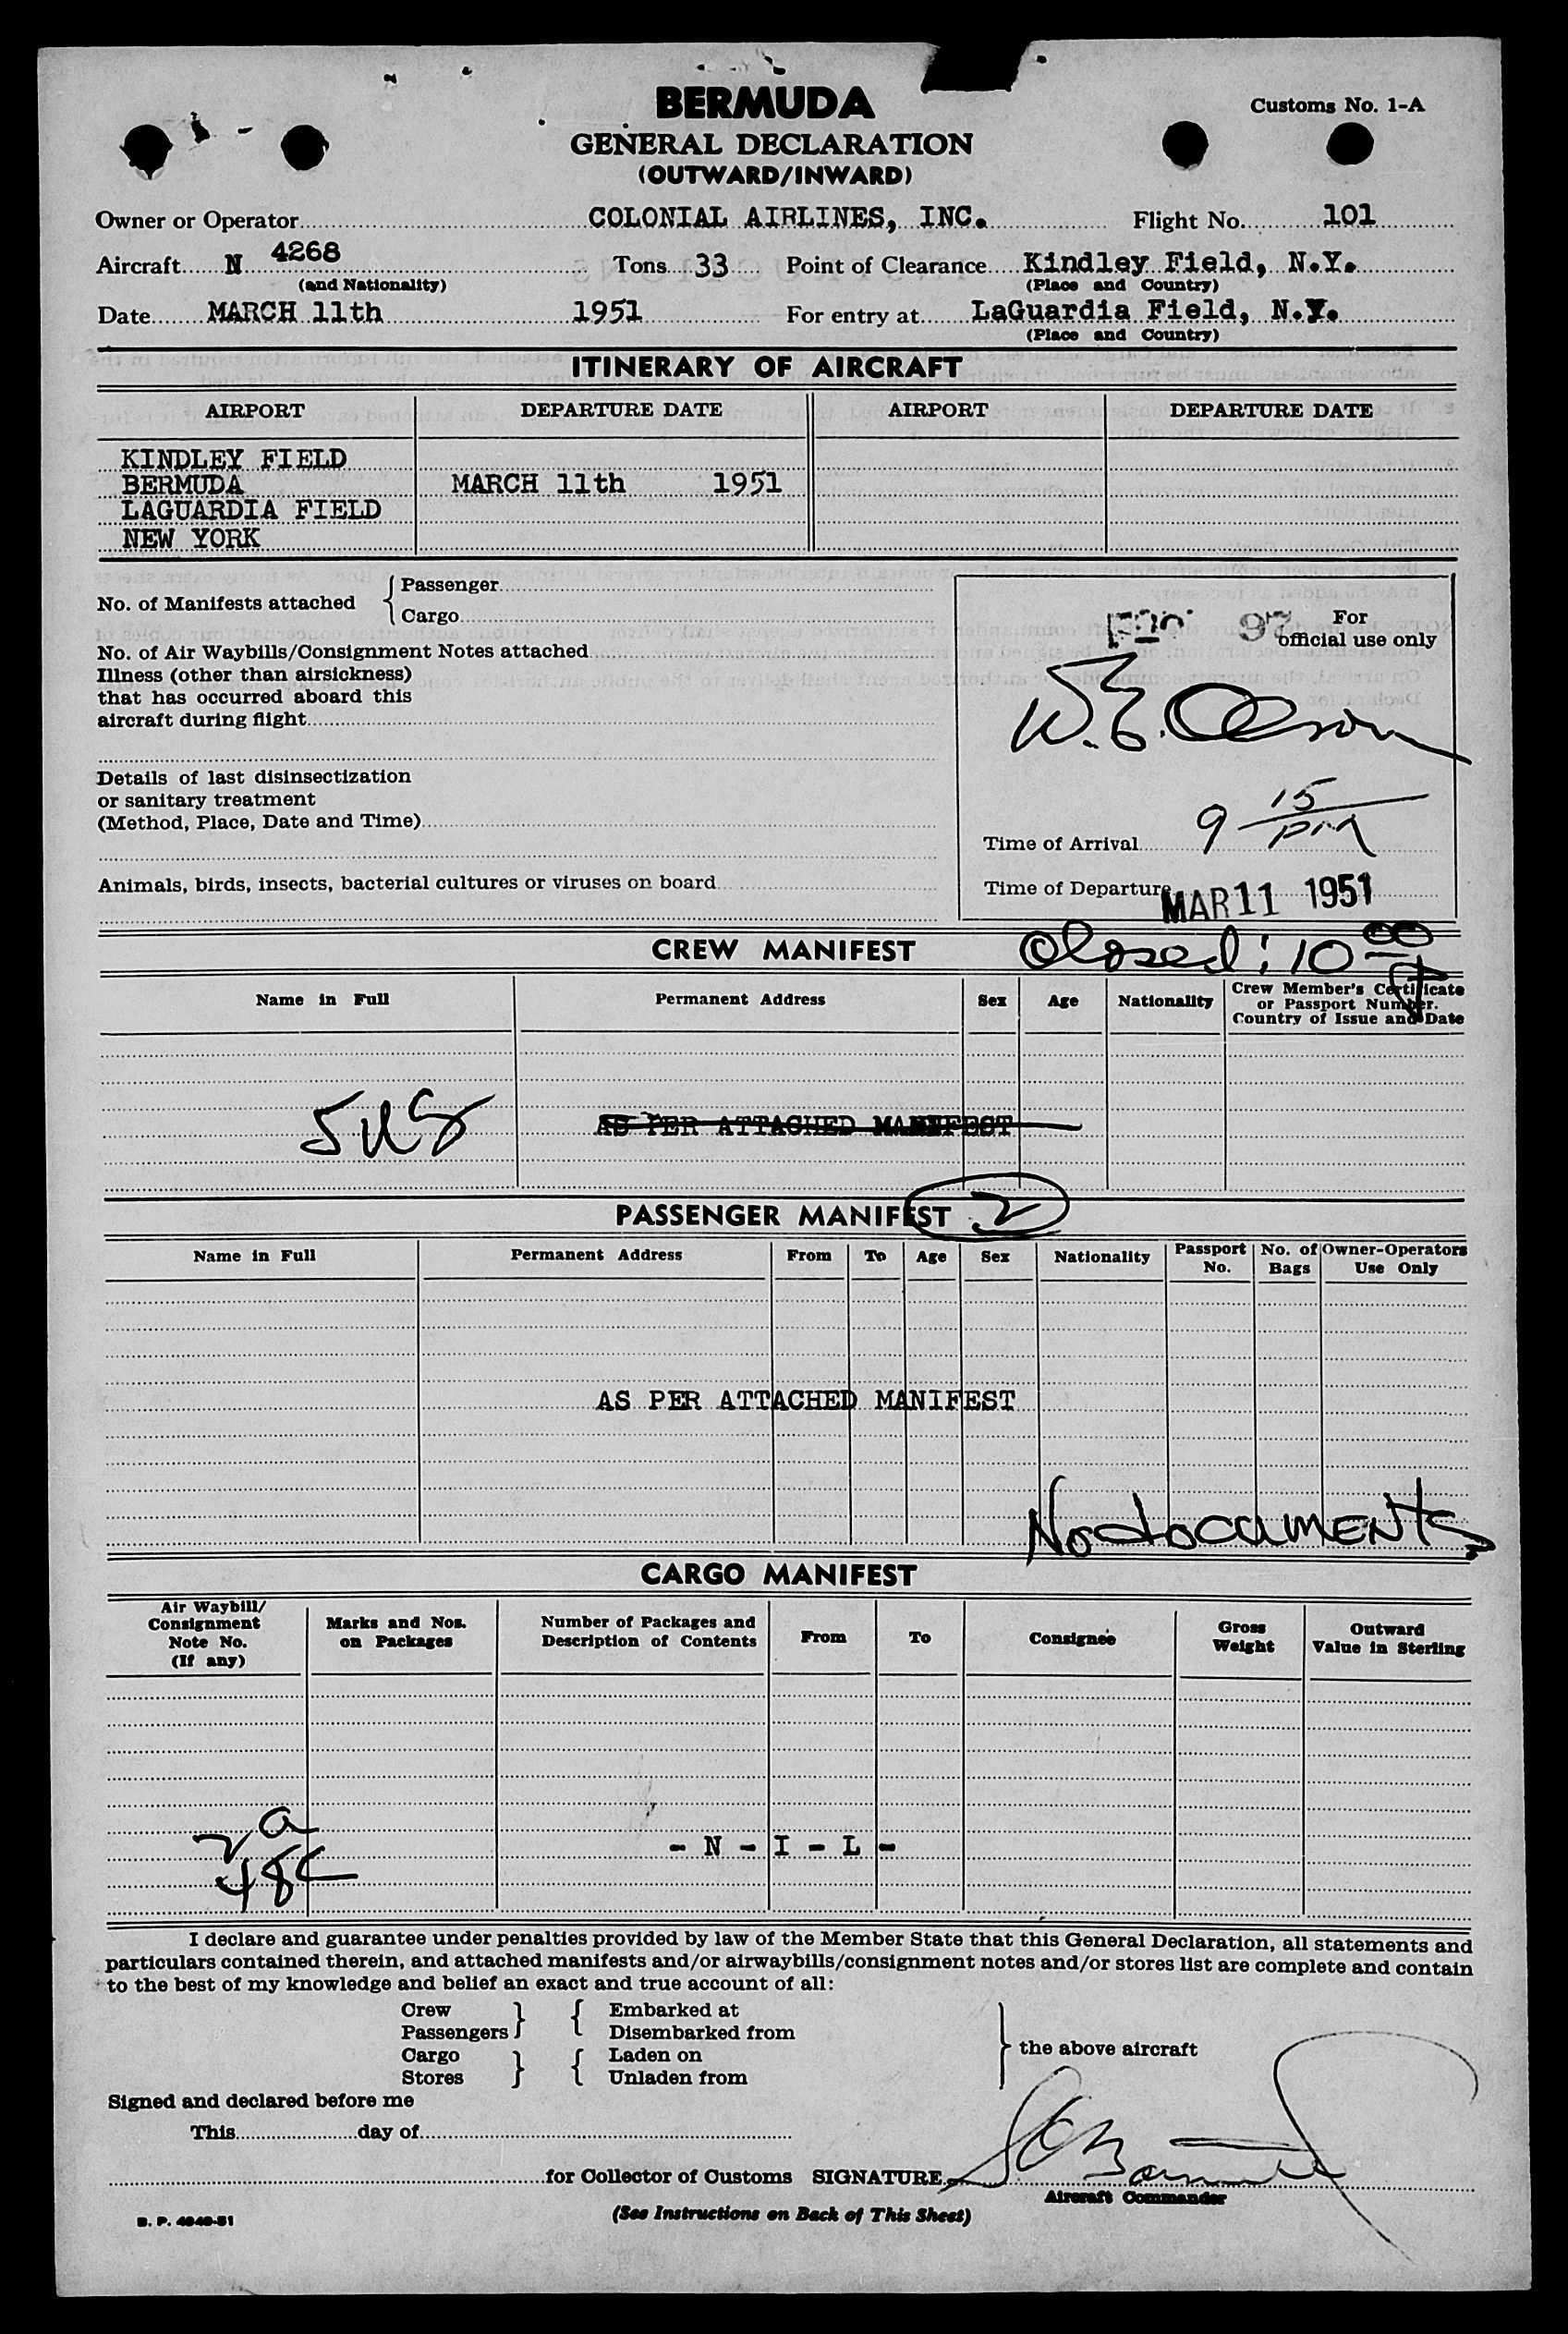 BERMUDA
Customs No. 1-A
GENERAL DECLARATION
(OUTWARD/INWARD)
Owner or Operator COLONIAL AIRLINES, INC. Flight No. 101
Aircraft N 4268 Tons 33 Point of Clearance Kindley Field, N.Y.
(and Nationality) (Place and Country)
Date MARCH 11th 1951 For entry at LaGuardia Field, N.Y.
(Place and Country)
ITINERARY OF AIRCRAFT
AIRPORT DEPARTURE DATE AIRPORT DEPARTURE DATE
KINDLEY FIELD
BERMUDA MARCH 11th 1951
LAGUARDIA FIELD
NEW YORK
No. of Manifests attached { Passenger
Cargo
No. of Air Waybills/Consignment Notes attached
Illness (other than airsickness)
that has occurred aboard this
aircraft during flight
Details of last disinsectization
or sanitary treatment
(Method, Place, Date and Time)
Animals, birds, insects, bacterial cultures or viruses on board
For
official use only
W.E. Olson
Time of Arrival 9 15 pm
Time of Departure MAR 11 1951
CREW MANIFEST Closed: 10 00
Name in Full Permanent Address Sex Age Nationality Crew Member's Certificate
or Passport Number.
Country of Issue and Date
5 US AS PER ATTACHED MANIFEST
PASSENGER MANIFEST 2
Name in Full Permanent Address From To Age Sex Nationality Passport No. No. of Bags Owner-Operators Use Only
AS PER ATTACHED MANIFEST
No documents
CARGO MANIFEST
Air Waybill/
Consignment
Note No.
(If any) Marks and Nos.
on Packages Number of Packages and
Description of Contents From To Consignee Gross
Weight Outward
Value in Sterling
2 a
48c
- N - I - L -
I declare and guarantee under penalties provided by law of the Member State that this General Declaration, all statements and
particulars contained therein, and attached manifests and/or airwaybills/consignment notes and/or stores list are complete and contain
to the best of my knowledge and belief an exact and true account of all:
Crew } { Embarked at
Passengers Disembarked from
Cargo } { Laden on } the above aircraft
Stores Unladen from
Signed and declared before me
This day of
for Collector of Customs SIGNATURE
Aircraft Commander
(See Instructions on Back of This Sheet)
B. P. 4040-51